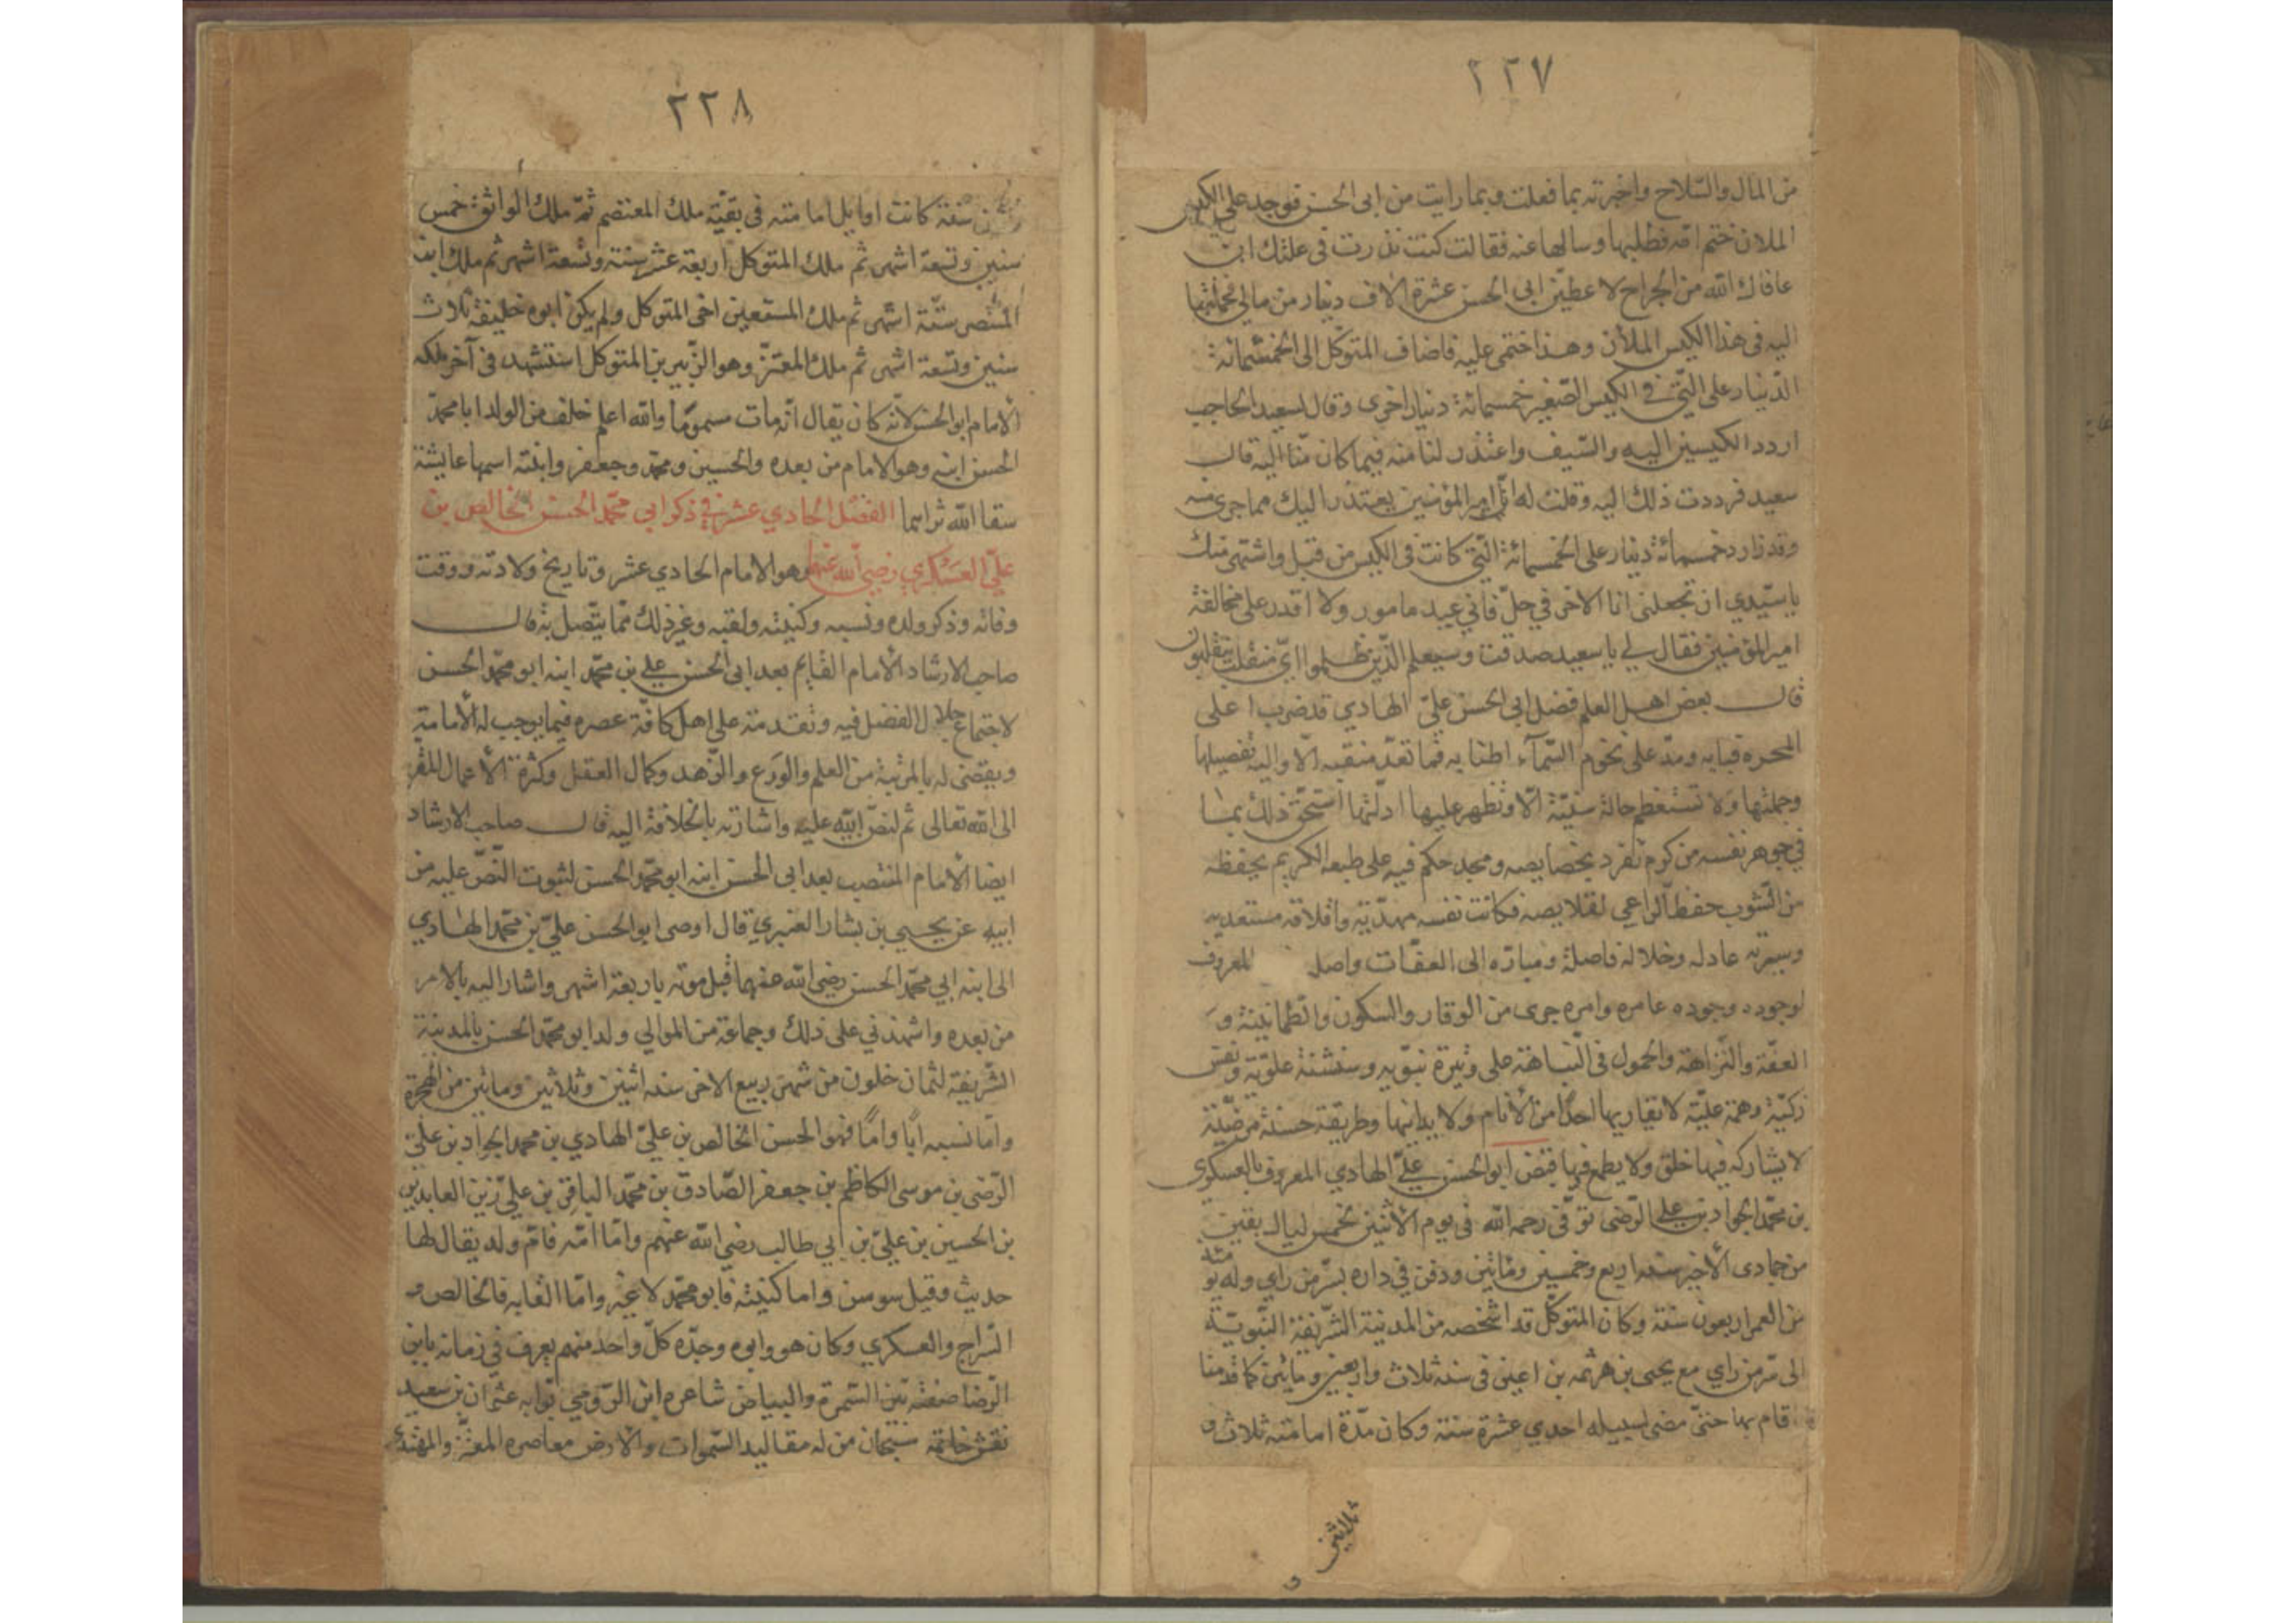 ٢٢٧
من المال والسّلاح واخبرته بما فعلت وبما رايت من ابى الحسن فوجد على الكيس
الملان ختم امّه فطلبها وسالها عنه فقالت كنت نذرت فى علتك ان
عافاك الله من الجراح لاعطينّ ابى الحسن عشرة الاف دينار من مالى فحملتها
اليه فى هذا الكيس الملأن وهذا ختمى عليه فاضاف المتوكّل الى الخمسمائة
الدّينار على الّتى في الكيس الصّغير خمسمائة دينار اخرى وقال لسعيد الحاجب
اردد الكيسين اليه والسّيف واعتذر لنا منه فيما كان منّا اليه قال
سعيد فرددت ذلك اليه وقلت له انّ امير المؤمنين يعتذر اليك مما جرى منه
وقد زاد خمسمائة دينار على الخمسمائة الّتي كانت فى الكيس من قبل واشتهى منك
يا سيّدي ان تجعلنى انا الاخر في حلّ فاني عبد مامور ولا اقدر على مخالفة
امير المؤمنين فقال لي يا سعيد صدقت وسيعلم الّذين ظلموا ايّ منقلب ينقلبون
قال بعض اهل العلم فضل ابى الحسن عليّ الهادي قد ضرب اعلى
المحره قبابه ومدّ على نجوم السّمآء اطنابه فما تعدّ منقبه الّا واليه تفصيلها
وجملتها ولا تستعظم حالة سنيّة الّا وتظهر عليها ادلّتها استحقّ ذلك بما
في جوهر نفسه من كرم تفرد بخصايصه ومجد حكم فيه على طبعه الكريم بحفظه
من الشّوب حفظ الراعي لقلايصه فكانت نفسه مهذّبة واخلاقه مستعذبه
وسيرته عادله وخلاله فاضلة ومبارّه الى العفات واصله المعروف
لوجوده وجوده عامره وامره جرى من الوقار والسكون والطّمانينة و
العفّة والنّزاهة والخمول فى النّباهة على وتيرة نبّويه وشنشنة علويّة ونفس
زكيّة وهمة عليّة لا يقاربها احدًا من الأنام ولا يدانيها وطريقة حسنة مرضيّة
لا يشاركه فيها خلق ولا يطمع فيها قبض ابو الحسن عليّ الهادي المعروف بالعسكرى
بن محمّد الجواد بن علي الرّضى توّفى رحمه الله فى يوم الأثنين لخمس ليال بقين
من جمادى الأخير سنه اربع وخمسين ومائتين ودفن في داره بسرّ من راي وله يو
مئذ
من العمر اربعون سنة وكان المتوكّل قد اشخصه من المدنية الشّريفة النّبويّة
الى سرّ من راي مع يحيى بن هرثمه بن اعين فى سنه ثلاث واربعين ومايتين كما قدمنا
اقام بها حتىّ مضى لسبيله احدي عشرة سنة وكان مدّة امامته ثلاث و
ثلاثين
٢٢٨
سنة كانت اوايل امامته فى بقيّة ملك المعتصم ثمّ ملك الواثق خمس
سنين وتسعة اشهر ثم ملك المتوكل اربعة عشر سنة وتسعة اشهر ثم ملك ابنه
المنتصر ستّة اشهر ثم ملك المستعين اخى المتوكل ولم يكن ابوه خليفة ثلاث
سنين وتسعة اشهر ثم ملك المعتزّ وهو الزّبير بن المتوكل استشهد فى آخر ملكه
الأمام ابو الحسن لأنّه كان يقال انّه مات مسمومًا والله اعلم خلف من الولد ابا محمّد
الحسن ابنه وهو الامام من بعده والحسين ومحمّد وجعفر وابنته اسمها عايشة
سقا الله ثراهما الفصل الحادي عشر في ذكر ابى محمّد الحسن الخالص بن
عليّ العسكري رضي الله عنهما وهو الامام الحادي عشر وتاريخ ولادته ووقت
وفاته وذكر ولده ونسبه وكنيته ولقبه وغير ذلك ممّا يتّصل به قال
صاحب الارشاد الأمام القايم بعد ابى الحسن علي بن محمّد ابنه ابو محمّد الحسن
لاجتماع خلال الفضل فيه وتقدمته على اهل كافّة عصره فيما يوجب له الأمامة
ويقضى له بالمرتبة من العلم والورَع والزّهد وكمال العقل وكثرة الأعمال المقرّبة
الى الله تعالى ثم لنصّ ابيه عليه واشارته بالخلافة اليه قال صاحب الارشاد
ايضا الأمام المنتصب بعد ابى الحسن ابنه ابو محمّد الحسن لثبوت النّصّ عليه من
ابيه عن يحيي بن بشار العنبري قال اوصى ابو الحسن عليّ بن محمّد الهادي
الى ابنه ابي محمّد الحسن رضي الله عنهما قبل موته باربعة اشهر واشار اليه بالامر
من بعده واشهدني على ذلك وجماعة من الموالي ولد ابو محمّد الحسن بالمدينة
الشّريفة لثمان خلون من شهر ربيع الاخر سنه اثنين وثلاثين ومائتين من الهجرة
وامّا نسبه ابًا وامًّا فهو الحسن الخالص بن عليّ الهادي بن محمد الجواد بن عليّ
الرّضى بن موسى الكاظم بن جعفر الصّادق بن محمّد الباقر بن عليّ زين العابدين
بن الحسين بن عليّ بن ابي طالب رضي الله عنهم وامّا امّه فامّ ولد يقال لها
حديث وقيل سوسن واما كنيته فابو محمّد لا غير وامّا القابه فالخالص و
السّراج والعسكري وكان هو وابوه وجدّه كلّ واحد منهم يعرف في زمانه بابن
الرّضا صفته بين السّمرة والبياض شاعره ابن الرّومي بوّابه عثمان بن سعيد
نقش خاتمه سبحان من له مقاليد السّموات والارض معاصره المعتزّ والمهتدي